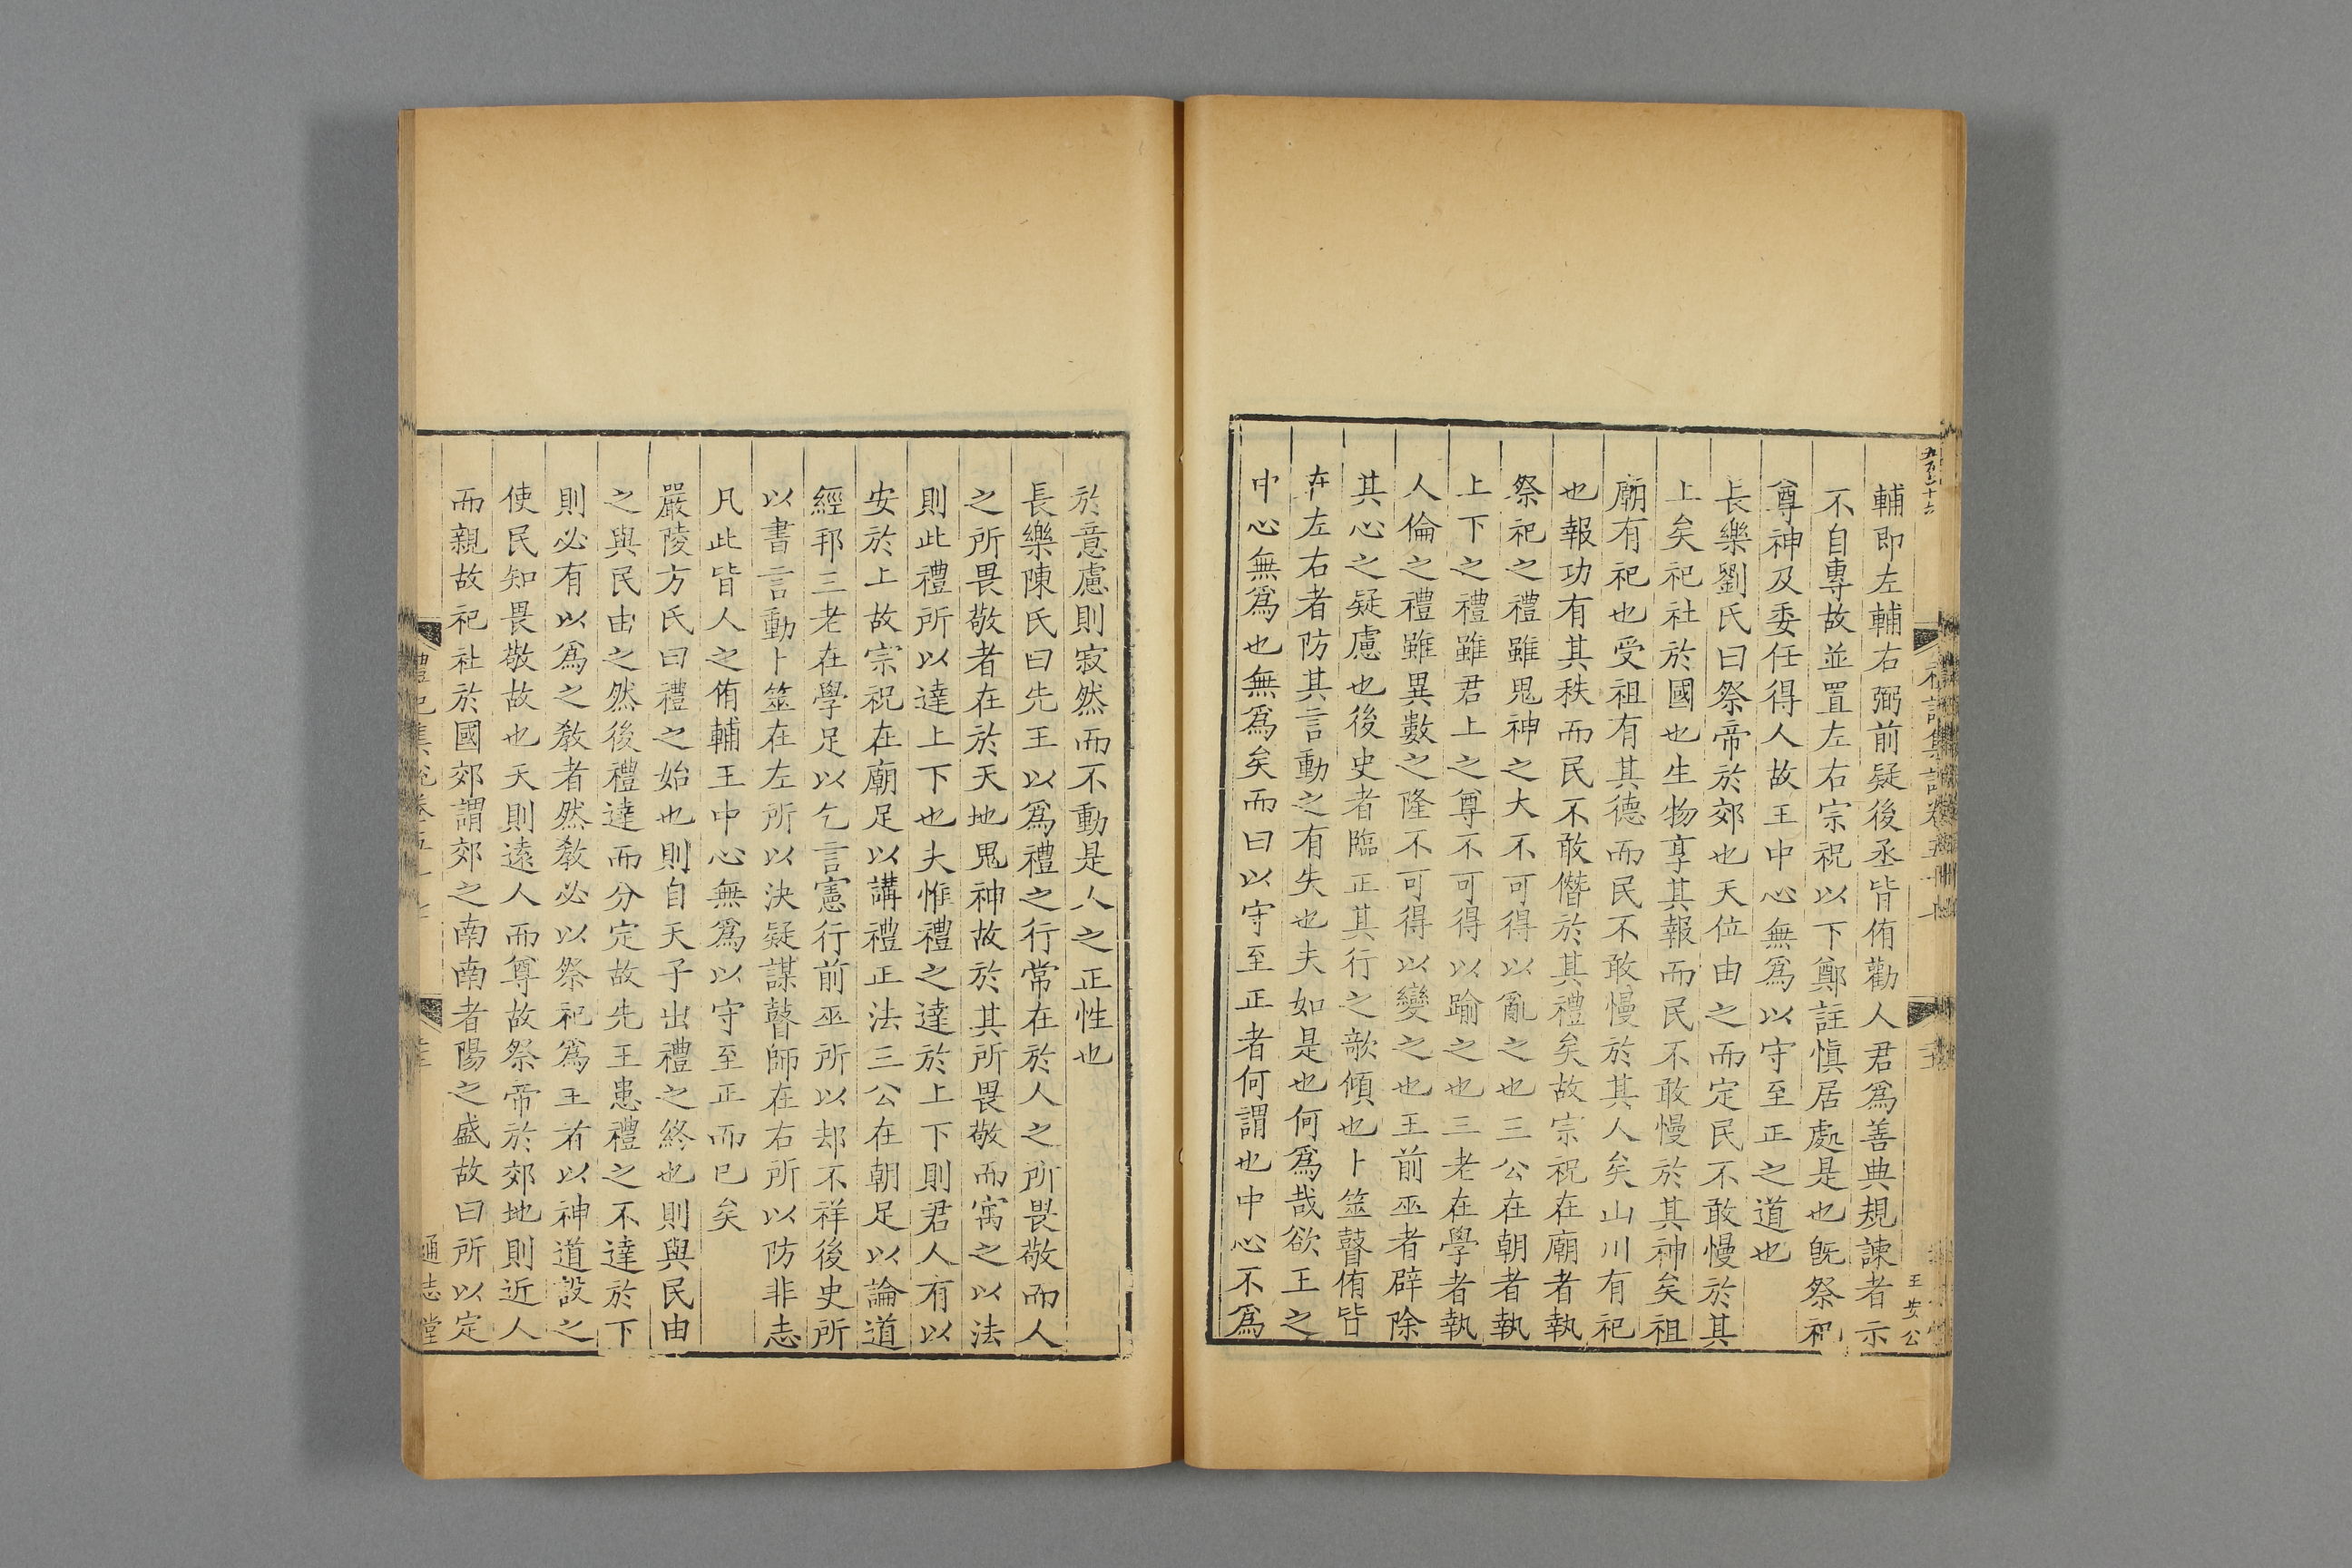 輔即左輔右弼前疑後丞皆侑勸人君爲善典規諫者示
不自專故並置左右宗祝以下鄭註愼居處是也旣祭祀
尊神及委任得人故王中心無爲以守至正之道也
長樂劉氏曰祭帝於郊也天位由之而定民不敢慢於其
上矣祀社於國也生物享其報而民不敢慢於其神矣祖
廟有祀也受祖有其德而民不敢慢於其人矣山川有祀
也報功有其秩而民不敢僭於其禮矣故宗祝在廟者執
祭祀之禮雖鬼神之大不可得以亂之也三公在朝者執
上下之禮雖君上之尊不可得以踰之也三老在學者執
人倫之禮雖異數之隆不可得以變之也王前巫者辟除
其心之疑慮也後史者臨正其行之欹傾也卜筮瞽侑皆
在左右者防其言動之有失也夫如是也何爲哉欲王之
中心無爲也無爲矣而曰以守至正者何謂也中心不爲
於意慮則寂然而不動是人之正性也
長樂陳氏曰先王以爲禮之行常在於人之所畏敬而人
之所畏敬者在於天地鬼神故於其所畏敬而寓之以法
則此禮所以達上下也夫惟禮之達於上下則君人有以
安於上故宗祝在廟足以講禮正法三公在朝足以論道
經邦三老在學足以乞言憲行前巫所以却不祥後史所
以書言動卜筮在左所以決疑謀瞽師在右所以防非志
凡此皆人之侑輔王中心無爲以守至正而已矣
嚴陵方氏曰禮之始也則自天子出禮之終也則與民由
之與民由之然後禮達而分定故先王患禮之不達於下
則必有以爲之敎者然敎必以祭祀爲主者以神道設之
使民知畏敬故也天則遠人而尊故祭帝於郊地則近人
而親故祀社於國郊謂郊之南南者陽之盛故曰所以定
禮記集說卷五十七
通志堂
王安公